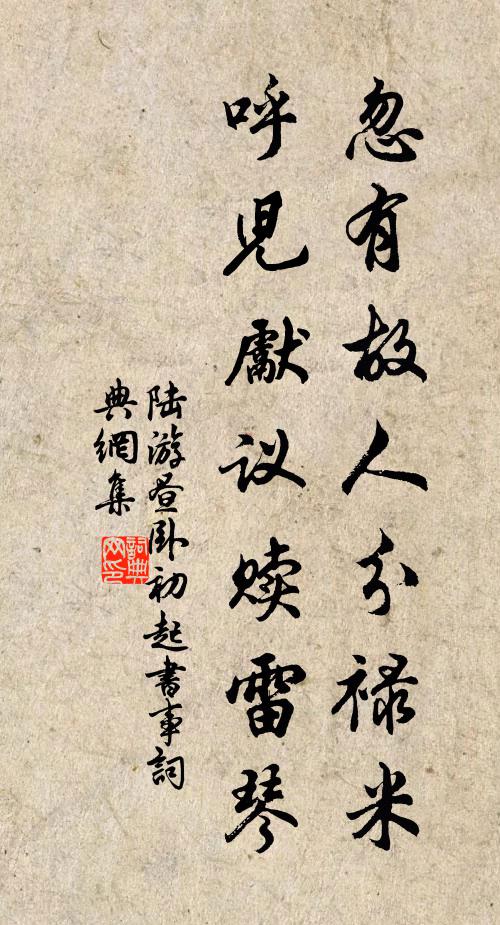 忽有故人分禄米
呼児獻议赎雷琴
陆游昼卧初起書事詞
典網集
詞典
网印